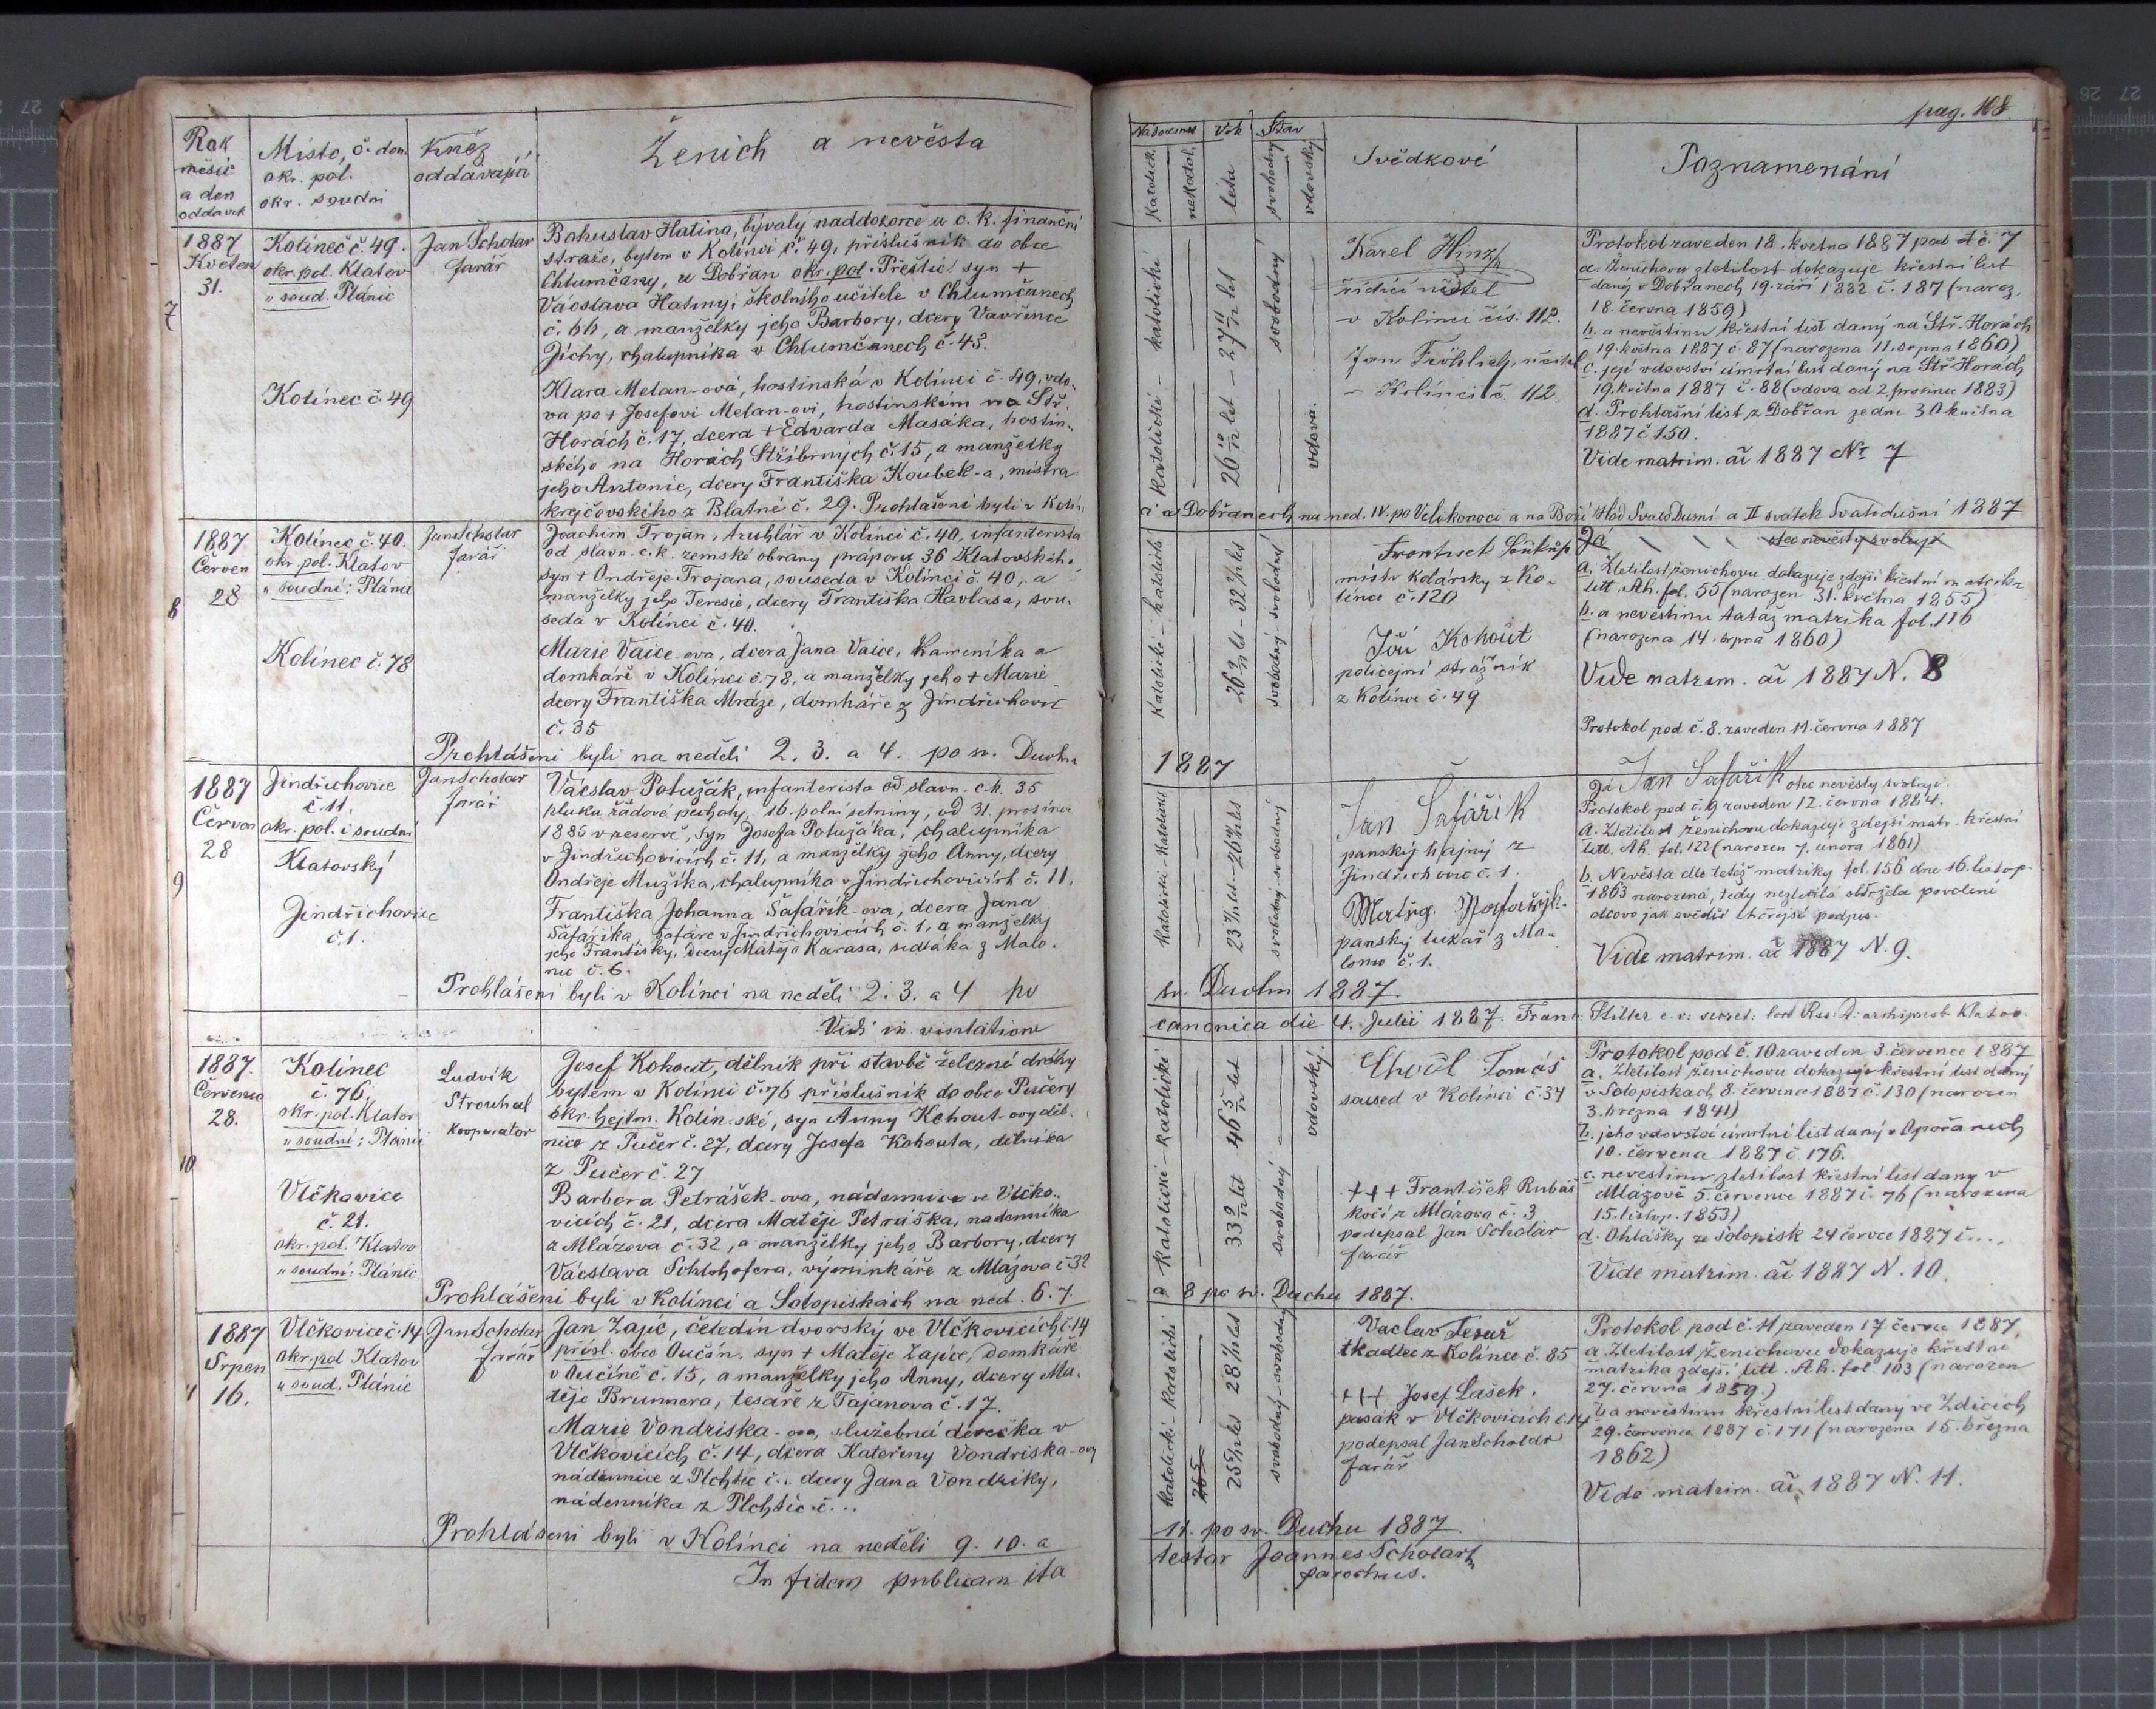 pag. 168
Rok
měsíc
a den
oddavek
Místo, č. dom.
okr. pol.
okr. soudní
Kněz
oddávající
Ženich a nevěsta
Katolick.
nekatol.
Věk
léta
Stav
svobodný
vdovský
Svědkové
Poznamenání
7
1887
Květen
31.
Kolineč č. 49.
okr. pol. Klatov
„ soud. Plánic
Kolinec č. 49
Jan Scholar
farář
Bohuslav Hatina, bývalý naddozorce u c. k. finanční
stráže, bytem v Kolinci č. 49, příslušník do obce
Chlumčany, u Dobřan okr. pol. Přeštic syn +
Václava Hatiny, školního učitele v Chlumčanech
č. 66, a manželky jeho Barbory, dcery Vavřince
Jíchy, chalupníka v Chlumčanech č. 43.
Klara Melan-ová, hostinská v Kolinci č. 49, vdo-
va po + Josefovi Melan-ovi, hostinském na Stř.
Horách č. 17, dcera + Edvarda Masáka, hostin-
ského na Horách Stříbrných č. 15, a manželky
jeho Antonie, dcery Františka Koubek-a, mistra
krejčovského z Blatné č. 29. Prohlášeni byli v Kolin-
katolický
katolická
27 11/12 let
26 10/12 let
svobodný
vdova.
Karel
řídící učitel
v Kolinci čís. 112.
Jan Fröhlich, učitel
Kolinci č. 112.
Protokol zaveden 18. května 1887 pod č. 7
a. Ženichovu zletilost dokazuje křestní list
daný v Dobřanech 19. září 1882 č. 187 (naroz.
18. června 1859)
b. a nevěstinu křestní list daný na Stř. Horách
19. května 1887 č. 87 (narozena 11. srpna 1860)
c. její vdovství úmrtní list daný na Stř. Horách
19. května 1887 č. 88 (vdova od 2. prosince 1883)
d. Prohlašní list z Dobřan ze dne 30 května
1887 č. 150.
Vide matrim. ai 1887 No 7
ci a v Dobřanech na ned. IV. po Velikonoci a na Boží Hod Svatodušní a II svátek Svatodušní 1887
8
1887
Červen
28
Kolinec č. 40.
okr. pol. Klatov
„ soudní: Plánic
Kolinec č. 78
Jan Scholar
farář
Joachim Trojan, truhlář v Kolinci č. 40, infanterista
od slavn. c. k. zemské obrany praporu 36 Klatovského
syn + Ondřeje Trojana, souseda v Kolinci č. 40, a
manželky jeho Teresie, dcery Františka Havlasa, sou-
seda v Kolinci č. 40.
Marie Vaice-ova, dcera Jana Vaice, kameníka a
domkáře v Kolinci č. 78, a manželky jeho + Marie
dcery Františka Mráze, domkáře z Jindřichovic
č. 35
Prohlášeni byli na neděli 2. 3. a 4. po sv. Duchu
1887
Katolická - katolický
svobodný svobodná
Frantisek Soukup
mistr kolářsky z Ko-
lince č. 120
Jiří Kohout
policejní strážník
z Kolince č. 49
Já otec nevěsty svoluji
a. Zletilost ženichovu dokazuje zdejší křestní matrika
litt. Ah. fol. 55 (narozen 31. května 1855)
b. a nevěstinu tatáž matrika fol. 116
(narozena 14. srpna 1860)
Vide matrim. ai 1887 N. 8
Protokol pod č. 8. zaveden 11. června 1887
9
1887
Červen
28
Jindřichovice
č. 11.
okr. pol. i soudní
Klatovský
Jindřichovice
č. 1.
Jan Scholar
farář
Václav Potužák, infanterista od slavn. c. k. 35
pluku řadové pěchoty, 16. polní setniny, od 31. prosince
1886 v reservě, syn Josefa Potužáka, chalupníka
v Jindřichovicích č. 11, a manželky jeho Anny, dcery
Ondřeje Mužíka, chalupníka v Jindřichovicích č. 11.
Františka Johanna Šafařík-ova, dcera Jana
Šafaříka, šafáře v Jindřichovicích č. 1, a manželky
jeho Františky, dcery Matěje Karasa, sedláka z Malo-
nic č. 6.
Prohlášeni byli v Kolinci na neděli 2. 3. a 4 po
sv. Duchu 1887.
Jan Šafářik
panský hajný z
Jindřichovic č. 1.
panský lukař z Ma-
lonic č. 1.
Já Jan Šafařík otec nevěsty svoluji.
Protokol pod č. 9 zaveden 12. června 1887.
a. Zletilost ženichovu dokazuje zdejší matr. křestní
litt. Ah. fol. 122 (narozen 7. února 1861)
b. Nevěsta dle tétéž matriky fol. 156 dne 16. listop.
1863 narozená, tedy nezletilá obdržela povolení
otcovo jak svědčí zhořejší podpis.
Vide matrim. ai 1887 N. 9.
Vidi in visitatione
canonica die 4. Julii 1887. Franc:
10
1887.
Července
28.
Kolinec
č. 76.
okr. pol. Klatov
„ soudní: Plánic
Vlčkovice
č. 21.
okr. pol. Klatov
„ soudní: Plánic
Ludvík
Strouhal
Kooperator
Josef Kohout, dělník při stavbě železné dráhy
bytem v Kolinci č. 76 příslušník do obce Pučery
okr. hejtm. Kolín-ské, syn Anny Kohout-ovy děl-
nice z Pučer č. 27, dcery Josefa Kohouta, dělníka
z Pučer č. 27
Barbora Petrášek-ova, nádennice ve Vlčko-
vicích č. 21, dcera Matěje Petráška, nadenníka
z Mlázova č. 32, a manželky jeho Barbory, dcery
Václava Schlohofera, výminkáře z Mlázova č. 32
Prohlášeni byli v Kolinci a Solopiskách na ned. 6. 7.
a 8 po sv. Duchu 1887.
Katolická - katolický
46 5/12 let
vdovský.
svobodná
Chval Tomáš
soused v Kolinci č. 34
+++ František Rubáš
kočí z Mlazova č. 3
podepsal Jan Scholar
farář
Protokol pod č. 10 zaveden 3. července 1887
a. Zletilost ženichovu dokazuje křestní list daný
v Solopiskach 8. července 1887 č. 130 (narozen
3. března 1841)
b. jeho vdovství úmrtní list daný v Opořanech
10. června 1887 č. 176.
c. nevěstinu zletilost křestní list daný v
Mlázově 5. července 1887 č. 76 (narozena
15. listop. 1853)
d. Ohlášky ze Solopisk 24 července 1887 č...
Vide matrim. ai 1887 N. 10.
11
1887
Srpen
16.
Vlčkovice č. 14
okr. pol Klatov
„ soud. Plánic
Jan Scholar
farář
Jan Zajíc, čeledín dvorský ve Vlčkovicích č. 14
přísl. obce Oučín. syn + Matěje Zajíce, domkáře
v Oučíně č. 15, a manželky jeho Anny, dcery Ma-
těje Brunnera, tesaře z Tajanova č. 17.
Marie Vondriska-ova, služebná děvečka v
Vlčkovicích č. 14, dcera Kateřiny Vondriska-ovy
nádennice z Plchtic č... dcery Jana Vondrisky,
nádenníka z Plchtic č...
Prohlášeni byli v Kolinci na neděli 9. 10. a
11. po sv. Duchu 1887.
Katolická - katolický
svobodná - svobodný
Vaclav Tesař
tkadlec z Kolince č. 85
+++ Josef Lašek.
pasák v Vlčkovicich č. 14
podepsal Jan Scholar
farář
Protokol pod č. 11 zaveden 17. červce 1887.
a. Zletilost ženichovu dokazuje křestní
matrika zdejší litt. Ah. fol. 103 (narozen
27. června 1859.)
b. a nevěstinu křestní list daný ve Zdicích
29. července 1887 č. 171 (narozena 15. března
1862)
Vide matrim. ai 1887 N. 11.
In fidem publicam ita
testor Joannes Scholar
parochus.